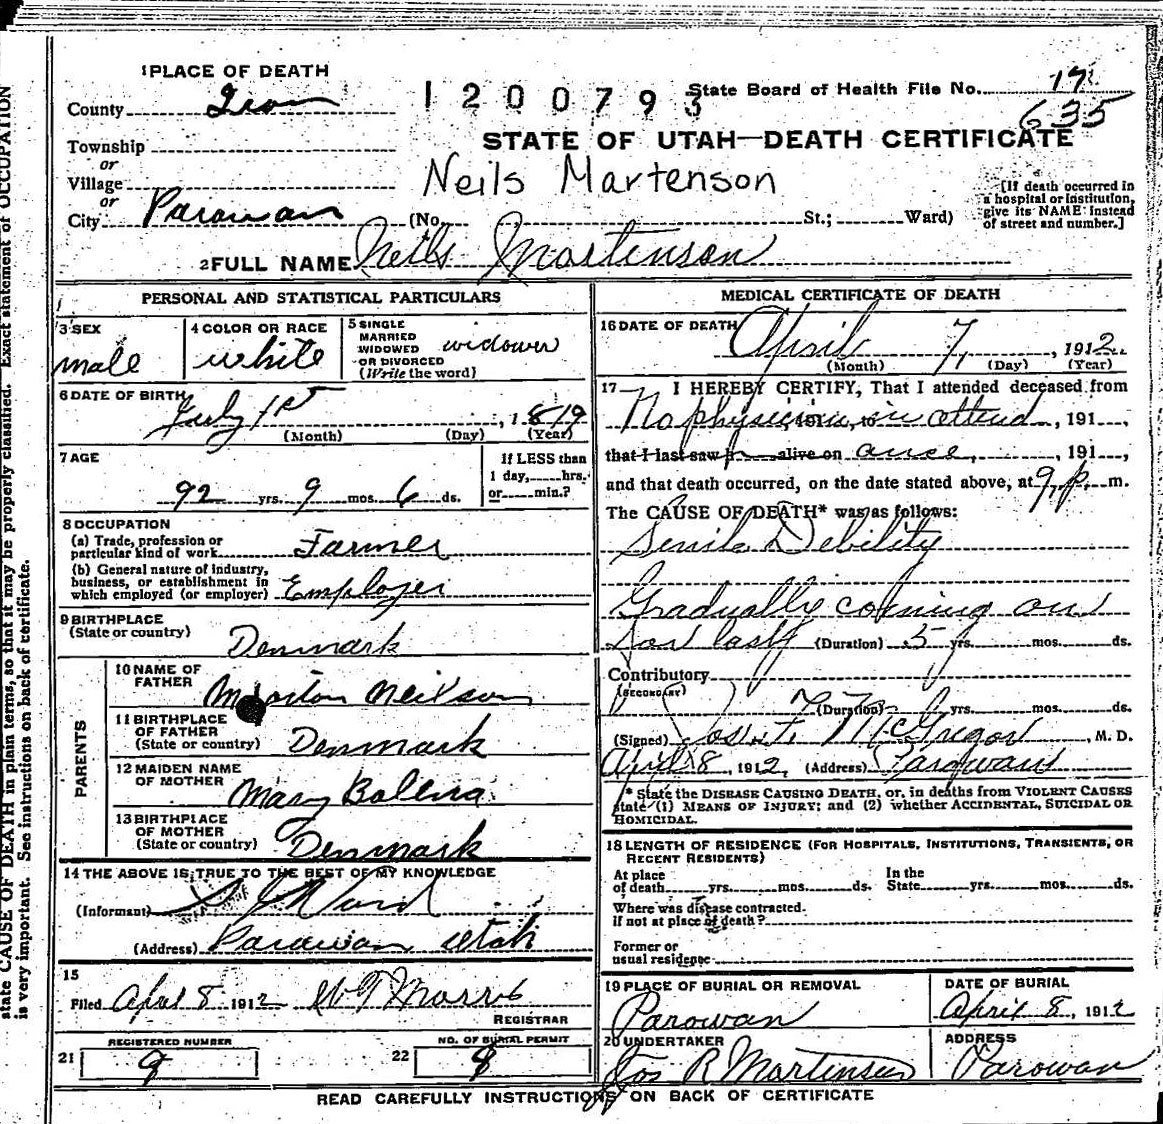 1 PLACE OF DEATH
County Iron
1200793
State Board of Health File No. 17
635
Township
or
Village
or
City Parowan
STATE OF UTAH—DEATH CERTIFICATE
Neils Martenson
(No. St.; Ward)
[If death occurred in
a hospital or institution,
give its NAME instead
of street and number.]
2 FULL NAME Neils Martenson
PERSONAL AND STATISTICAL PARTICULARS
3 SEX
male
4 COLOR OR RACE
white
5 SINGLE
MARRIED
WIDOWED
OR DIVORCED
(Write the word)
widower
6 DATE OF BIRTH
July 1st, 1819
(Month) (Day) (Year)
7 AGE
92 yrs. 9 mos. 6 ds.
If LESS than
1 day, hrs.
or min.?
8 OCCUPATION
(a) Trade, profession or
particular kind of work Farmer
(b) General nature of industry,
business, or establishment in
which employed (or employer) Employer
9 BIRTHPLACE
(State or country)
Denmark
PARENTS
10 NAME OF
FATHER
Morton Neilson
11 BIRTHPLACE
OF FATHER
(State or country)
Denmark
12 MAIDEN NAME
OF MOTHER
Mary Bolena
13 BIRTHPLACE
OF MOTHER
(State or country)
Denmark
14 THE ABOVE IS TRUE TO THE BEST OF MY KNOWLEDGE
(Informant) Ward
(Address) Parowan Utah
15
Filed April 8 1912 Morris
REGISTRAR
REGISTERED NUMBER
21 9
NO. OF BURIAL PERMIT
22 9
MEDICAL CERTIFICATE OF DEATH
16 DATE OF DEATH
April 7, 1912
(Month) (Day) (Year)
17 I HEREBY CERTIFY, That I attended deceased from
No physician in attend, 191,
that I last saw h alive on ance, 191,
and that death occurred, on the date stated above, at 9 p. m.
The CAUSE OF DEATH* was as follows:
Senile Debility
Gradually coming on
for last (Duration) 5 yrs. mos. ds.
Contributory
(SECONDARY)
(Duration) yrs. mos. ds.
(Signed) Jos. T. McGregor, M. D.
April 8, 1912 (Address) Parowan
* State the DISEASE CAUSING DEATH, or, in deaths from VIOLENT CAUSES
state (1) MEANS OF INJURY; and (2) whether ACCIDENTAL, SUICIDAL OR
HOMICIDAL.
18 LENGTH OF RESIDENCE (FOR HOSPITALS, INSTITUTIONS, TRANSIENTS, OR
RECENT RESIDENTS)
At place
of death yrs. mos. ds.
In the
State yrs. mos. ds.
Where was disease contracted.
if not at place of death?
Former or
usual residence
19 PLACE OF BURIAL OR REMOVAL
Parowan
DATE OF BURIAL
April 8, 1912
20 UNDERTAKER
Jos R Martinsen
ADDRESS
Parowan
READ CAREFULLY INSTRUCTIONS ON BACK OF CERTIFICATE
state CAUSE OF DEATH in plain terms, so that it may be properly classified. Exact statement of OCCUPATION
is very important. See instructions on back of certificate.